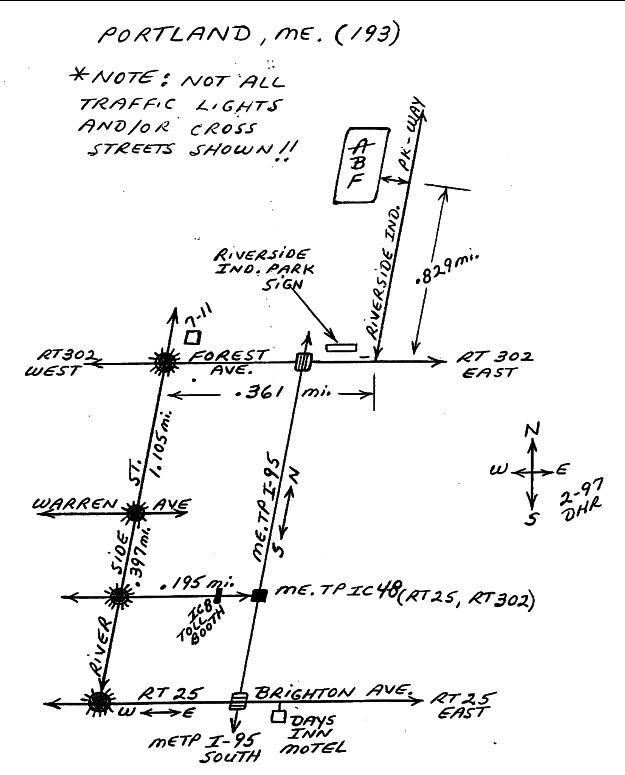 PORTLAND, ME. (193)
*NOTE: NOT ALL
TRAFFIC LIGHTS
AND/OR CROSS
STREETS SHOWN!!
A
B
F
PK-WAY
RIVERSIDE IND.
.829 mi.
RIVERSIDE
IND. PARK
SIGN
7-11
RT 302
WEST
FOREST
AVE.
RT 302
EAST
.361 mi.
1.105 mi.
ST.
ME. TP I-95
N
S
N
W E
S
2-97
DHR
WARREN AVE
SIDE
.397 mi.
.195 mi.
IC8
TOLL
BOOTH
ME. TP IC 48 (RT 25, RT 302)
RIVER
RT 25
BRIGHTON AVE.
RT 25
EAST
W E
DAYS
INN
MOTEL
METP I-95
SOUTH